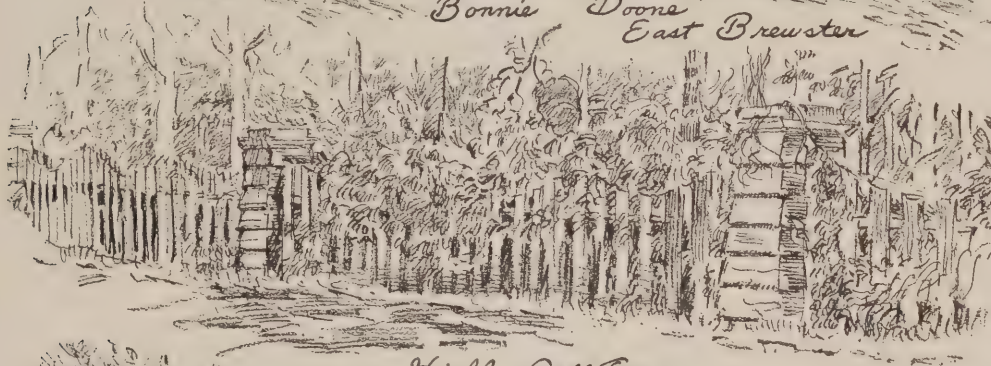 Bonnie Doone
East Brewster